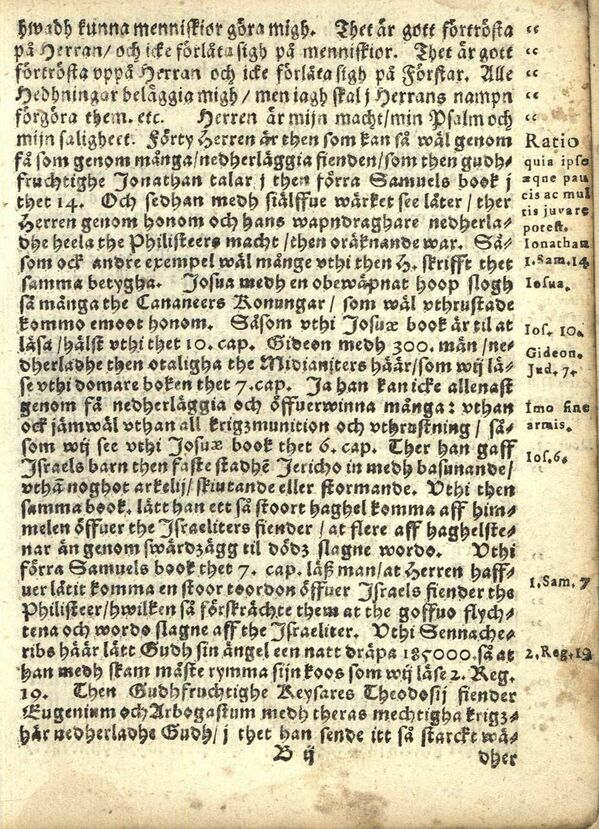 hwadh kunna menniskior göra migh. Thet är gott förtrösta
på Herran/ och icke förlåta sigh på menniskior. Thet är gott
förtrösta vppå Herran och icke förlåta sigh på Förstar. Alle
Hedhningar beläggia migh/ men iagh skal j Herrans nampn
förgöra them. etc. Herren är mijn macht/ min Psalm och
mijn saligheet. Förty Herren är then som kan så wäl genom
få som genom många/ nedherläggia fienden/ som then gudh-
fruchtighe Jonathan talar j then förra Samuels book j
thet 14. Och sedhan medh siälffue wärket see låter/ ther
Herren genom honom och hans wapndraghare nedherla-
dhe heela the Philisteers macht/ then oräknande war. Så-
som ock andre exempel wäl mänge vthi then H. skrifft thet
samma betygha. Josua medh en obewäpnat hoop slogh
så många the Cananeers Konungar/ som wäl vthrustade
kommo emoot honom. Såsom vthi Josuæ book är til at
läsa/ hälst vthi thet 10. cap. Gideon medh 300. män/ ne-
dherladhe then otaligha the Midianiters häär/ som wij lä-
se vthi domare boken thet 7. cap. Ja han kan icke allenast
genom få nedherläggia och öffuerwinna många: vthan
ock jämwäl vthan all krigzmunition och vthrustning/ så-
som wij see vthi Josuæ book thet 6. cap. Ther han gaff
Israels barn then faste stadhē Jericho in medh basunande/
vthā noghot arkelij/ skiutande eller stormande. Vthi then
samma book. lätt han ett så stoort haghel komma aff him-
melen öffuer the Israeliters fiender/ at flere aff haghelste-
nar än genom swärdzägg til dödz slagne wordo. Vthi
förra Samuels book thet 7. cap. läß man/ at Herren haff-
uer låtit komma en stoor toordon öffuer Israels fiender the
Philisteer/ hwilken så förskrächte them at the goffuo flych-
tena och wordo slagne aff the Israeliter. Vthi Sennache-
ribs häär lätt Gudh sin ängel een natt dräpa 185000. så at
han medh skam måste rymma sijn koos som wij läse 2. Reg.
19. Then Gudhfruchtighe Keysares Theodosij fiender
Eugenium och Arbogastum medh theras mechtigha krigz-
här nedherladhe Gudh/ j thet han sende itt så starckt wä-
B ij
dher
“
“
“
“
“
Ratio
quia ipse
æque pau
cis ac mul
tis juvare
potest.
Ionatham
1. Sam. 14
Iosua.
Ios. 10.
Gideon.
Jud. 7.
Imo sine
armis.
Ios. 6.
1. Sam. 7
2. Reg. 19